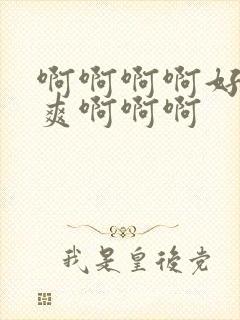 啊啊啊啊好
爽啊啊啊
我是皇後党